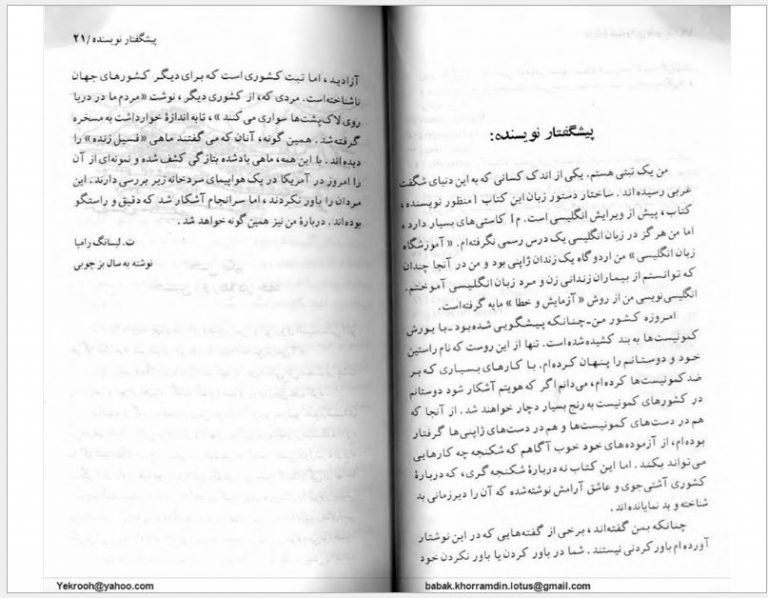 پیشگفتار نویسنده:
من یک تبتی هستم. یکی از اندک کسانی که به این دنیای شگفت
غربی رسیده‌اند. ساختار دستور زبان این کتاب [منظور نویسنده،
کتاب، پیش از ویرایش انگلیسی است. م] کاستی‌های بسیار دارد،
اما من هرگز در زبان انگلیسی یک درس رسمی نگرفته‌ام. «آموزشگاه
زبان انگلیسی» من اردوگاه یک زندان ژاپنی بود و من در آنجا چندان
که توانستم از بیماران زندانی زن و مرد زبان انگلیسی آموختم.
انگلیسی‌نویسی من از روش «آزمایش و خطا» مایه گرفته‌است.
امروزه کشور من-چنانکه پیشگویی شده بود-با یورش
کمونیست‌ها به بند کشیده‌شده است. تنها از این روست که نام راستین
خود و دوستانم را پنهان کرده‌ام. با کارهای بسیاری که بر
ضد کمونیست‌ها کرده‌ام، می‌دانم اگر که هویتم آشکار شود دوستانم
در کشورهای کمونیست به رنج بسیار دچار خواهند شد. از آنجا که
هم در دست‌های کمونیست‌ها و هم در دست‌های ژاپنی‌ها گرفتار
بوده‌ام، از آزموده‌های خود خوب آگاهم که شکنجه چه کارهایی
می‌تواند بکند. اما این کتاب نه دربارهٔ شکنجه گری، که دربارهٔ
کشوری آشتی‌جوی و عاشق آرامش نوشته‌شده که آن را دیرزمانی بد
شناخته و بد نمایانده‌اند.
چنانکه بمن گفته‌اند، برخی از گفته‌هایی که در این نوشتار
آورده‌ام باور کردنی نیستند. شما در باور کردن یا باور نکردن خود
babak.khorramdin.lotus@gmail.com
پیشگفتار نویسنده/۲۱
آزادید، اما تبت کشوری است که برای دیگر کشورهای جهان
ناشناخته‌است. مردی که، از کشوری دیگر، نوشت «مردم ما در دریا
روی لاک‌پشت‌ها سواری می‌کنند»، تا به اندازهٔ خوارداشت به مسخره
گرفته‌شد. همین گونه، آنان که می گفتند ماهی «فسیل زنده» را
دیده‌اند. با این همه، ماهی یادشده بتازگی کشف شده و نمونه‌ای از آن
را امروز در آمریکا در یک هواپیمای سردخانه زیر بررسی دارند. این
مردان را باور نکردند، اما سرانجام آشکار شد که دقیق و راستگو
بوده‌اند. دربارهٔ من نیز همین گونه خواهد شد.
ت. لبسانگ رامپا
نوشته به سال بز چوبی
Yekrooh@yahoo.com